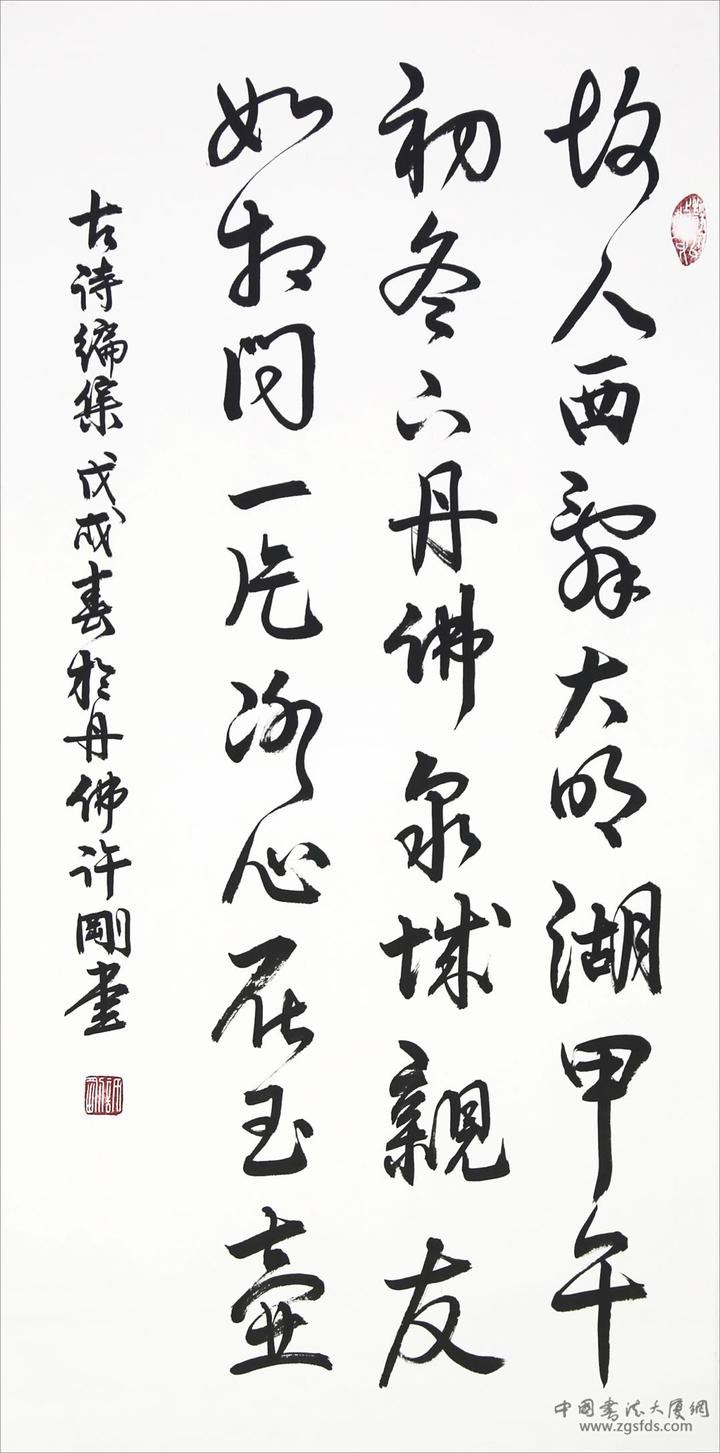 故人西辞大明湖甲午
初冬下丹佛泉城親友
如相问一片冰心在玉壶
古诗编集戊戌春於丹佛许剛书
中国书法大厦網
www.zgsfds.com